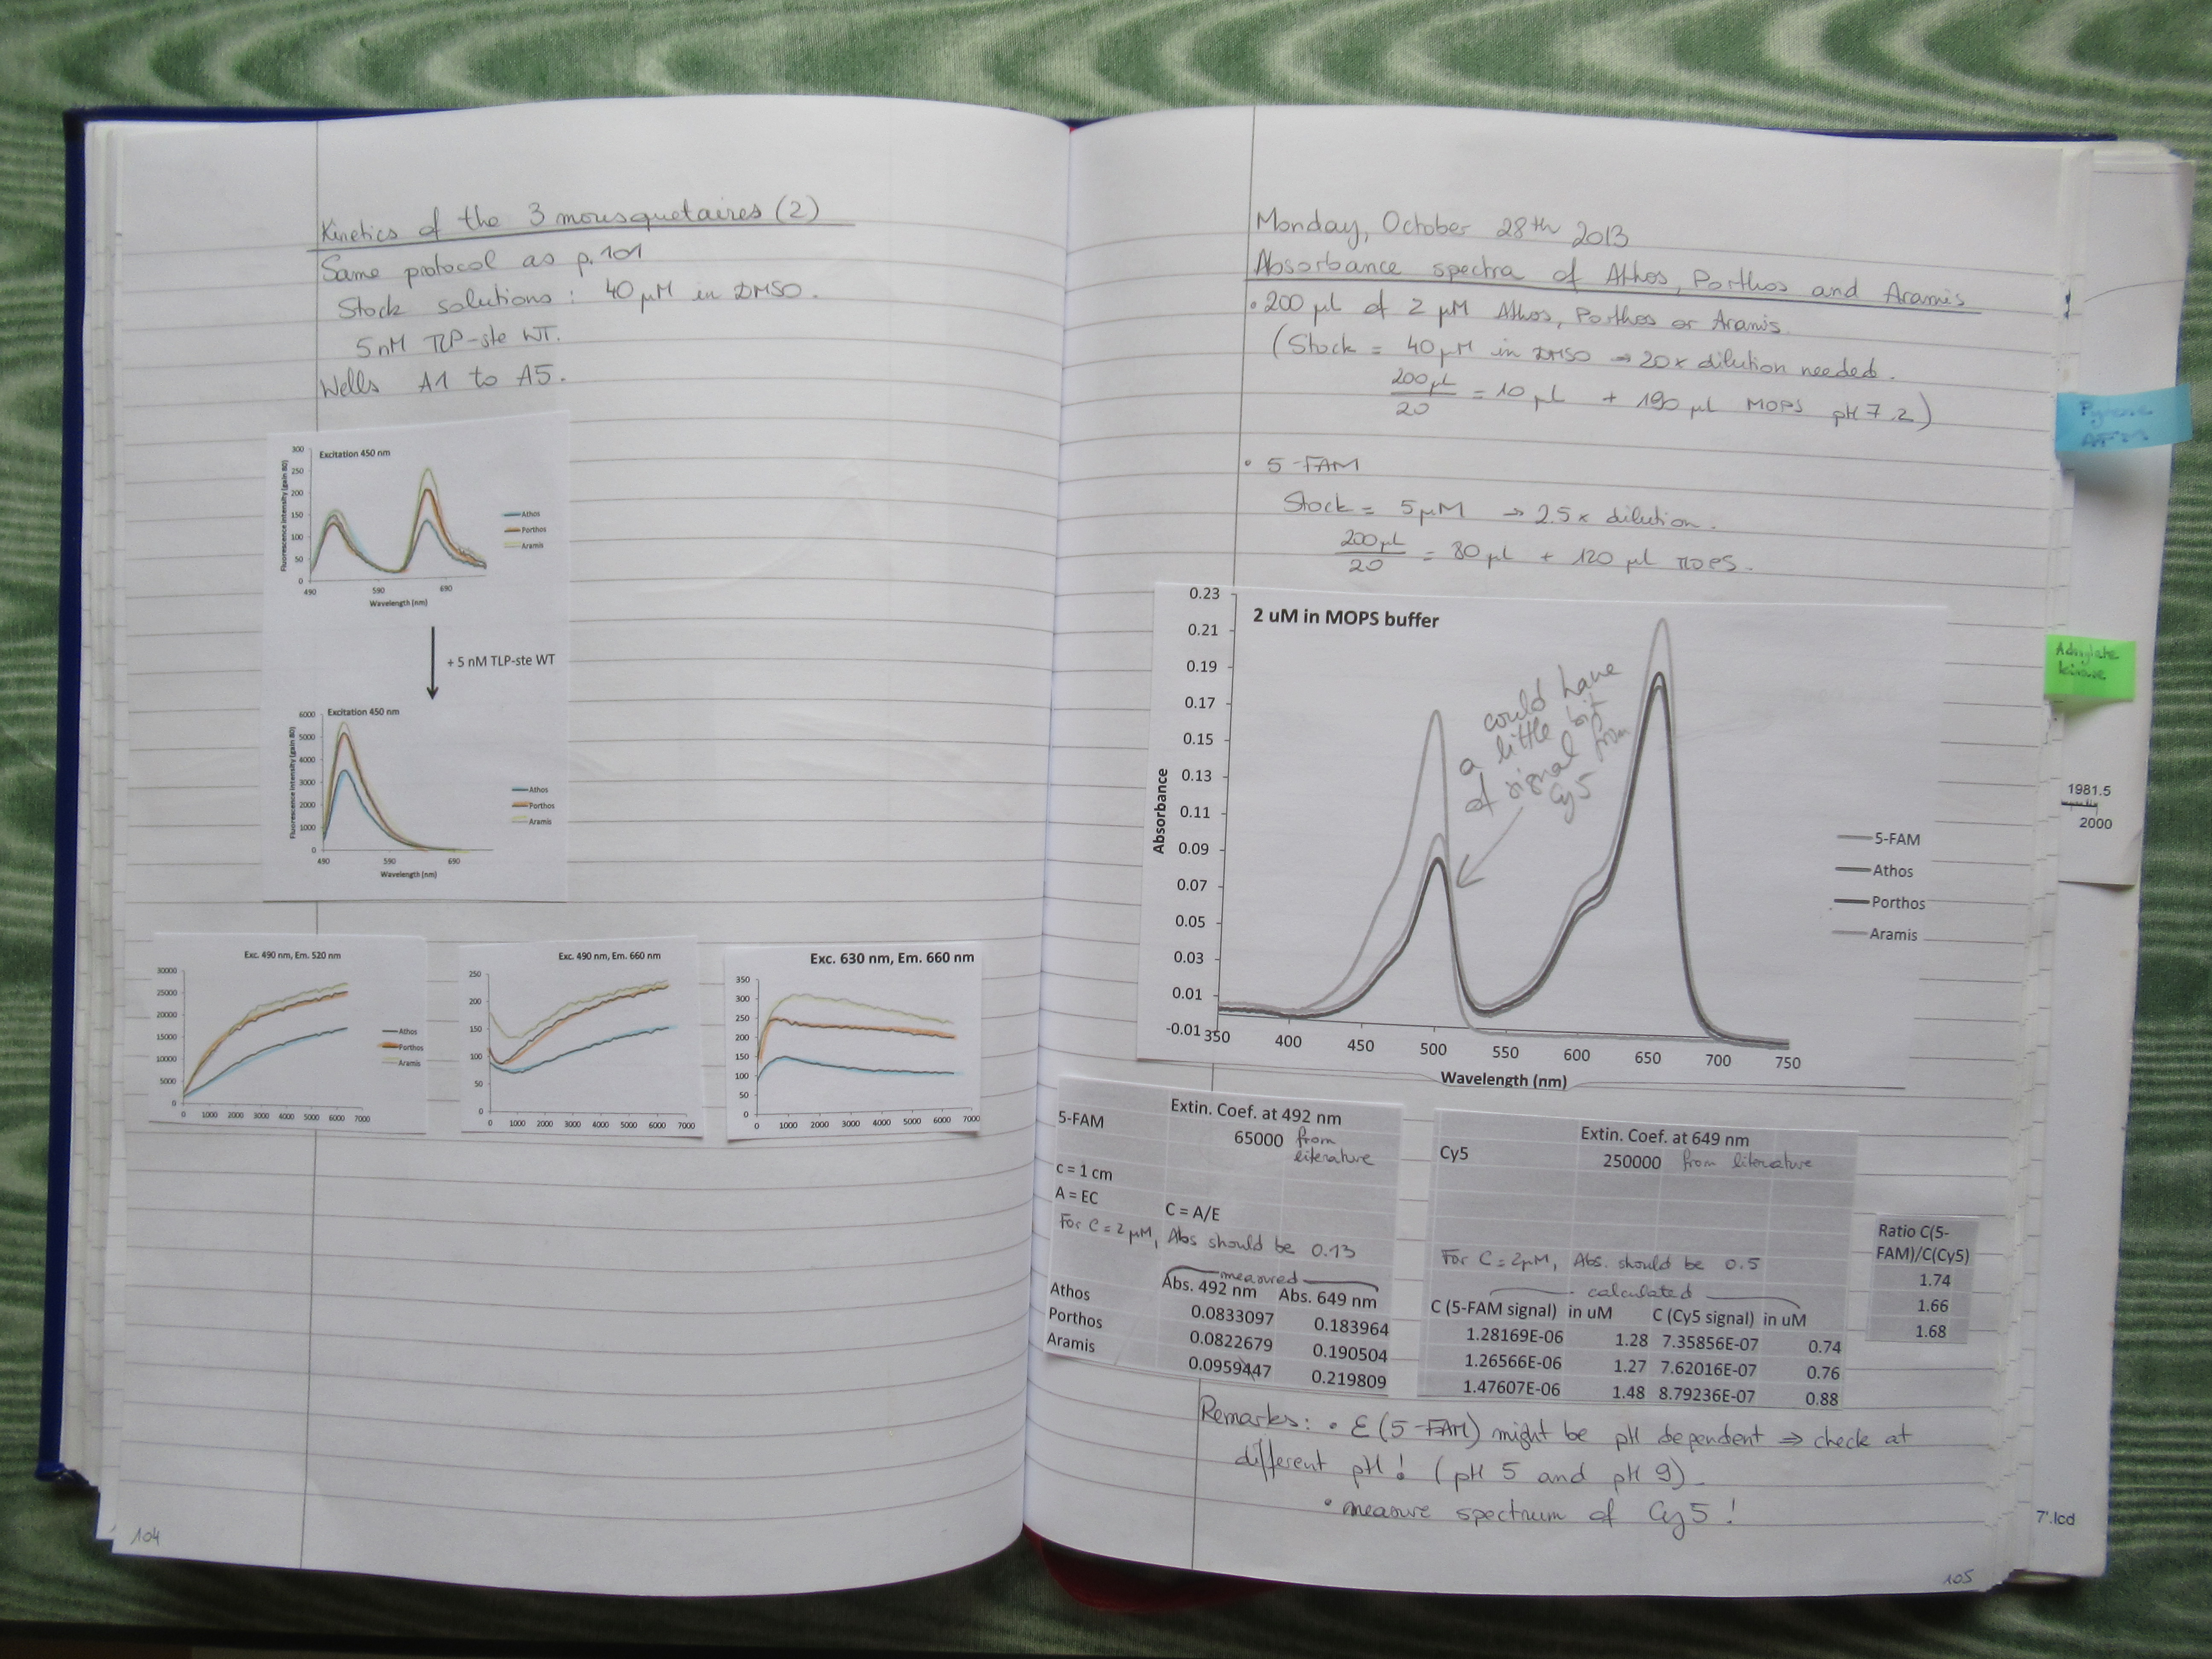 Kinetics of the 3 mousquetaires (2)
Same protocol as p.101
Stock solutions : 40 µM in DMSO.
5 nM TLP-ste WT.
Wells A1 to A5.
Excitation 450 nm
Fluorescence Intensity (gain 80)
300
250
200
150
100
50
0
490 590 690
Wavelength (nm)
Athos
Porthos
Aramis
+ 5 nM TLP-ste WT
Excitation 450 nm
Fluorescence Intensity (gain 80)
6000
5000
4000
3000
2000
1000
0
490 590 690
Wavelength (nm)
Athos
Porthos
Aramis
Exc. 490 nm, Em. 520 nm
30000
25000
20000
15000
10000
5000
0
0 1000 2000 3000 4000 5000 6000 7000
Athos
Porthos
Aramis
Exc. 490 nm, Em. 660 nm
250
200
150
100
50
0
0 1000 2000 3000 4000 5000 6000 7000
Exc. 630 nm, Em. 660 nm
350
300
250
200
150
100
50
0
0 1000 2000 3000 4000 5000 6000 7000
104
Monday, October 28th 2013
Absorbance spectra of Athos, Porthos and Aramis
• 200 µl of 2 µM Athos, Porthos or Aramis.
(Stock = 40 µM in DMSO → 20x dilution needed.
200 µl
20
= 10 µl + 190 µl MOPS pH 7.2)
• 5-FAM
Stock = 5 µM → 2.5x dilution.
200 µl
20
= 80 µl + 120 µl MOPS.
2 uM in MOPS buffer
Absorbance
0.23
0.21
0.19
0.17
0.15
0.13
0.11
0.09
0.07
0.05
0.03
0.01
-0.01
350 400 450 500 550 600 650 700 750
Wavelength (nm)
could have
a little bit
of signal from
Cy5
5-FAM
Athos
Porthos
Aramis
5-FAM Extin. Coef. at 492 nm
65000 from
literature
c = 1 cm
A = EC C = A/E
For C = 2 µM, Abs should be 0.13
measured
Abs. 492 nm Abs. 649 nm
Athos 0.0833097 0.183964
Porthos 0.0822679 0.190504
Aramis 0.0959447 0.219809
Extin. Coef. at 649 nm
Cy5 250000 from literature
For C = 2µM, Abs. should be 0.5
calculated
C (5-FAM signal) in uM C (Cy5 signal) in uM
1.28169E-06 1.28 7.35856E-07 0.74
1.26566E-06 1.27 7.62016E-07 0.76
1.47607E-06 1.48 8.79236E-07 0.88
Ratio C(5-
FAM)/C(Cy5)
1.74
1.66
1.68
Remarks : • ε (5-FAM) might be pH dependent ⇒ check at
different pH ! (pH 5 and pH 9).
• measure spectrum of Cy5 !
105
Adenylate
kinase
1981.5
2000
7'.lcd